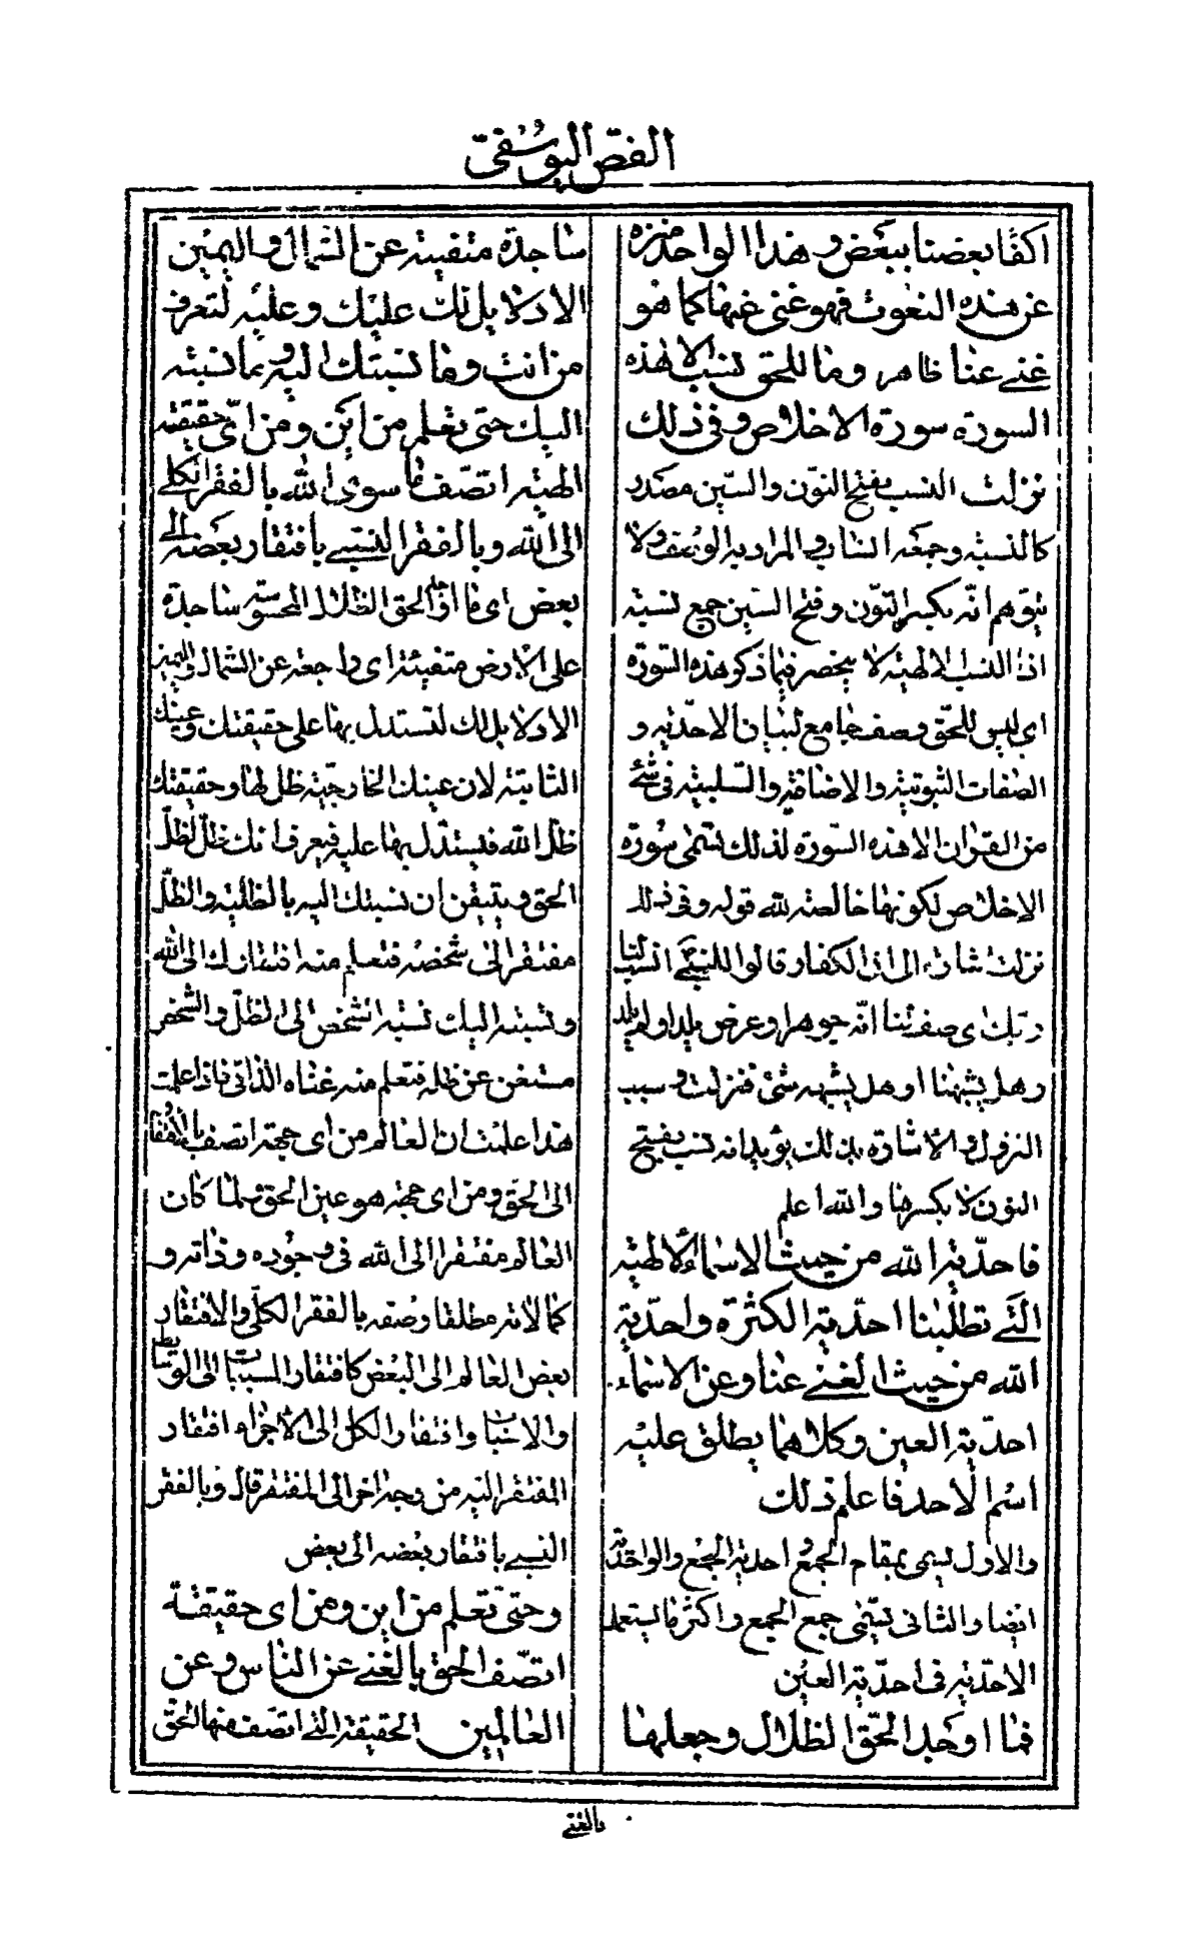 الفص اليوسفى
اكفا بعضنا ببعض و هذا الواحد منزه
عن هذه النعوت فهو غنى عنها كما هو
غنى عنا ظاهر وما للحق نسب الا هذه
السورة سورة الاخلاص و فى ذلك
نزلت النسب بفتح النون والسّين مصدر
كالنسبة وجمعه انساب والمراد به الوصف ولا
يتوهم انّه بكسر النّون وفتح السّين جمع نسبة
اذ النسب الالهية لا ينحصر فيما ذكر هذه السّورة
اى ليس للحقّ وصف جامع لبيان الاحدّية و
الصّفات الثبوتية والاضافية والسّلبية فى شئ
من القرآن الا هذه السّورة لذلك تسمّى سورة
الاخلاص لكونها خالصة لله قوله وفى ذلك
نزلت اشارة الى انّ الكفار قالوا للنبىّ انسب لنا
ربّك اى صفه لنا انّه جوهر او عرض يلد او لم يلد
وهل يشبهنا او هل يشبهه شئ فنزلت وسبب
النزول والاشارة بذلك يؤيد انه نسب بفتح
النون لا بكسرها والله اعلم
فاحدّية الله من حيث الاسماء الالهية
التّى تطلبنا احدّية الكثرة واحدّية
الله من حيث الغنى عنا وعن الاسماء
احدّية العين وكلاهما يطلق عليه
اسم الاحد فاعلم ذلك
والاول يسمى بمقام الجمع واحدية الجمع والواحديّة
ايضا والثانى يسمّى جمع الجمع واكثر ما يستعمل
الاحدّية فى احدّية العين
فما اوجد الحّق الظلال وجعلها
ساجدة متفيئة عن الشمال واليمين
الا دلايل لك عليك وعليه لتعرف
من انت وما نسبتك اليه وما نسبته
اليك حتى تعلم من اين ومن اىّ حقيقة
الهية اتصّف ما سوى الله بالفقر الكلى
الى الله وبالفقر النسبى بافتقار بعضه الى
بعض اى ما اوجد الحق الظلال المحسوسة ساجدة
على الارض متفيئة اى راجعة عن الشمال واليمين
الا دلايل لك لتستدل بها على حقيقتك وعينك
الثابتة لان عينك الخارجيّة ظل لها وحقيقتك
ظلّ الله فتستدّل بها عليه فتعرف انك ظلّ لظلّ
الحق وتتيقن ان نسبتك اليه بالظلية والظلّ
مفتقر الى شخصه فتعلم منه افتقارك الى الله
ونسبته اليك نسبة الشخص الى الظلّ والشخص
مستغن عن ظله فتعلم منه غناه الذاتى فاذا علمت
هذا علمت ان العالم من اى جهة اتصف بالافتقار
الى الحّق ومن اى جهة هو عين الحق ولما كان
العالم مفتقرا الى الله فى وجوده وذاته و
كمالاته مطلقا وصفه بالفقر الكلّى والافتقار
بعض العالم الى البعض كافتقار المسببات الى الوسايط
والاسباب وافتقار الكل الى الاجزاء افتقار
المفتقر اليه من وجه اخر الى المفتقر قال وبالفقر
النسبى بافتقار بعضه الى بعض
وحتى تعلم من اين ومن اى حقيقة
اتصّف الحق بالغنى عن الناس وعن
العالمين الحقيقة التى اتصف منها الحق
بالغنى